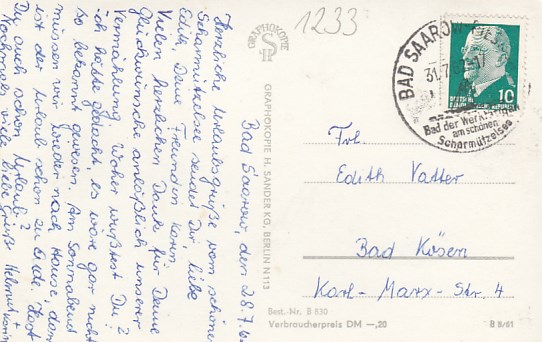 1233
Bad Saarow, den 28.7.6
Herzliche Urlaubsgrüße vom schönen
Scharmützelsee sendet Dir, liebe
Edith, Deine Freundin Karin.
Vielen herzlichen Dank für Deine
Glückwünsche anläßlich unserer
Vermählung. Woher wußtest Du?
ich hätte gedacht, es wäre gar nicht
so bekannt gewesen. Am Sonnabend
müssen wir wieder nach Hause, dann
ist der Urlaub schon zu Ende. Hast
Du auch schon Urlaub?
Nochmals viele liebe Grüße Helmut + Karin
GRAPHOKOPIE
GRAPHOKOPIE H. SANDER KG, BERLIN N 113
BAD SAAROW
31.7.6
-17
Bad der Werktätigen
am schönen
Scharmützelsee
10
Frl.
Edith Vatter
Bad Kösen
Karl-Marx-Str. 4
Best.-Nr. B 830
Verbraucherpreis DM —,20
B 8/61